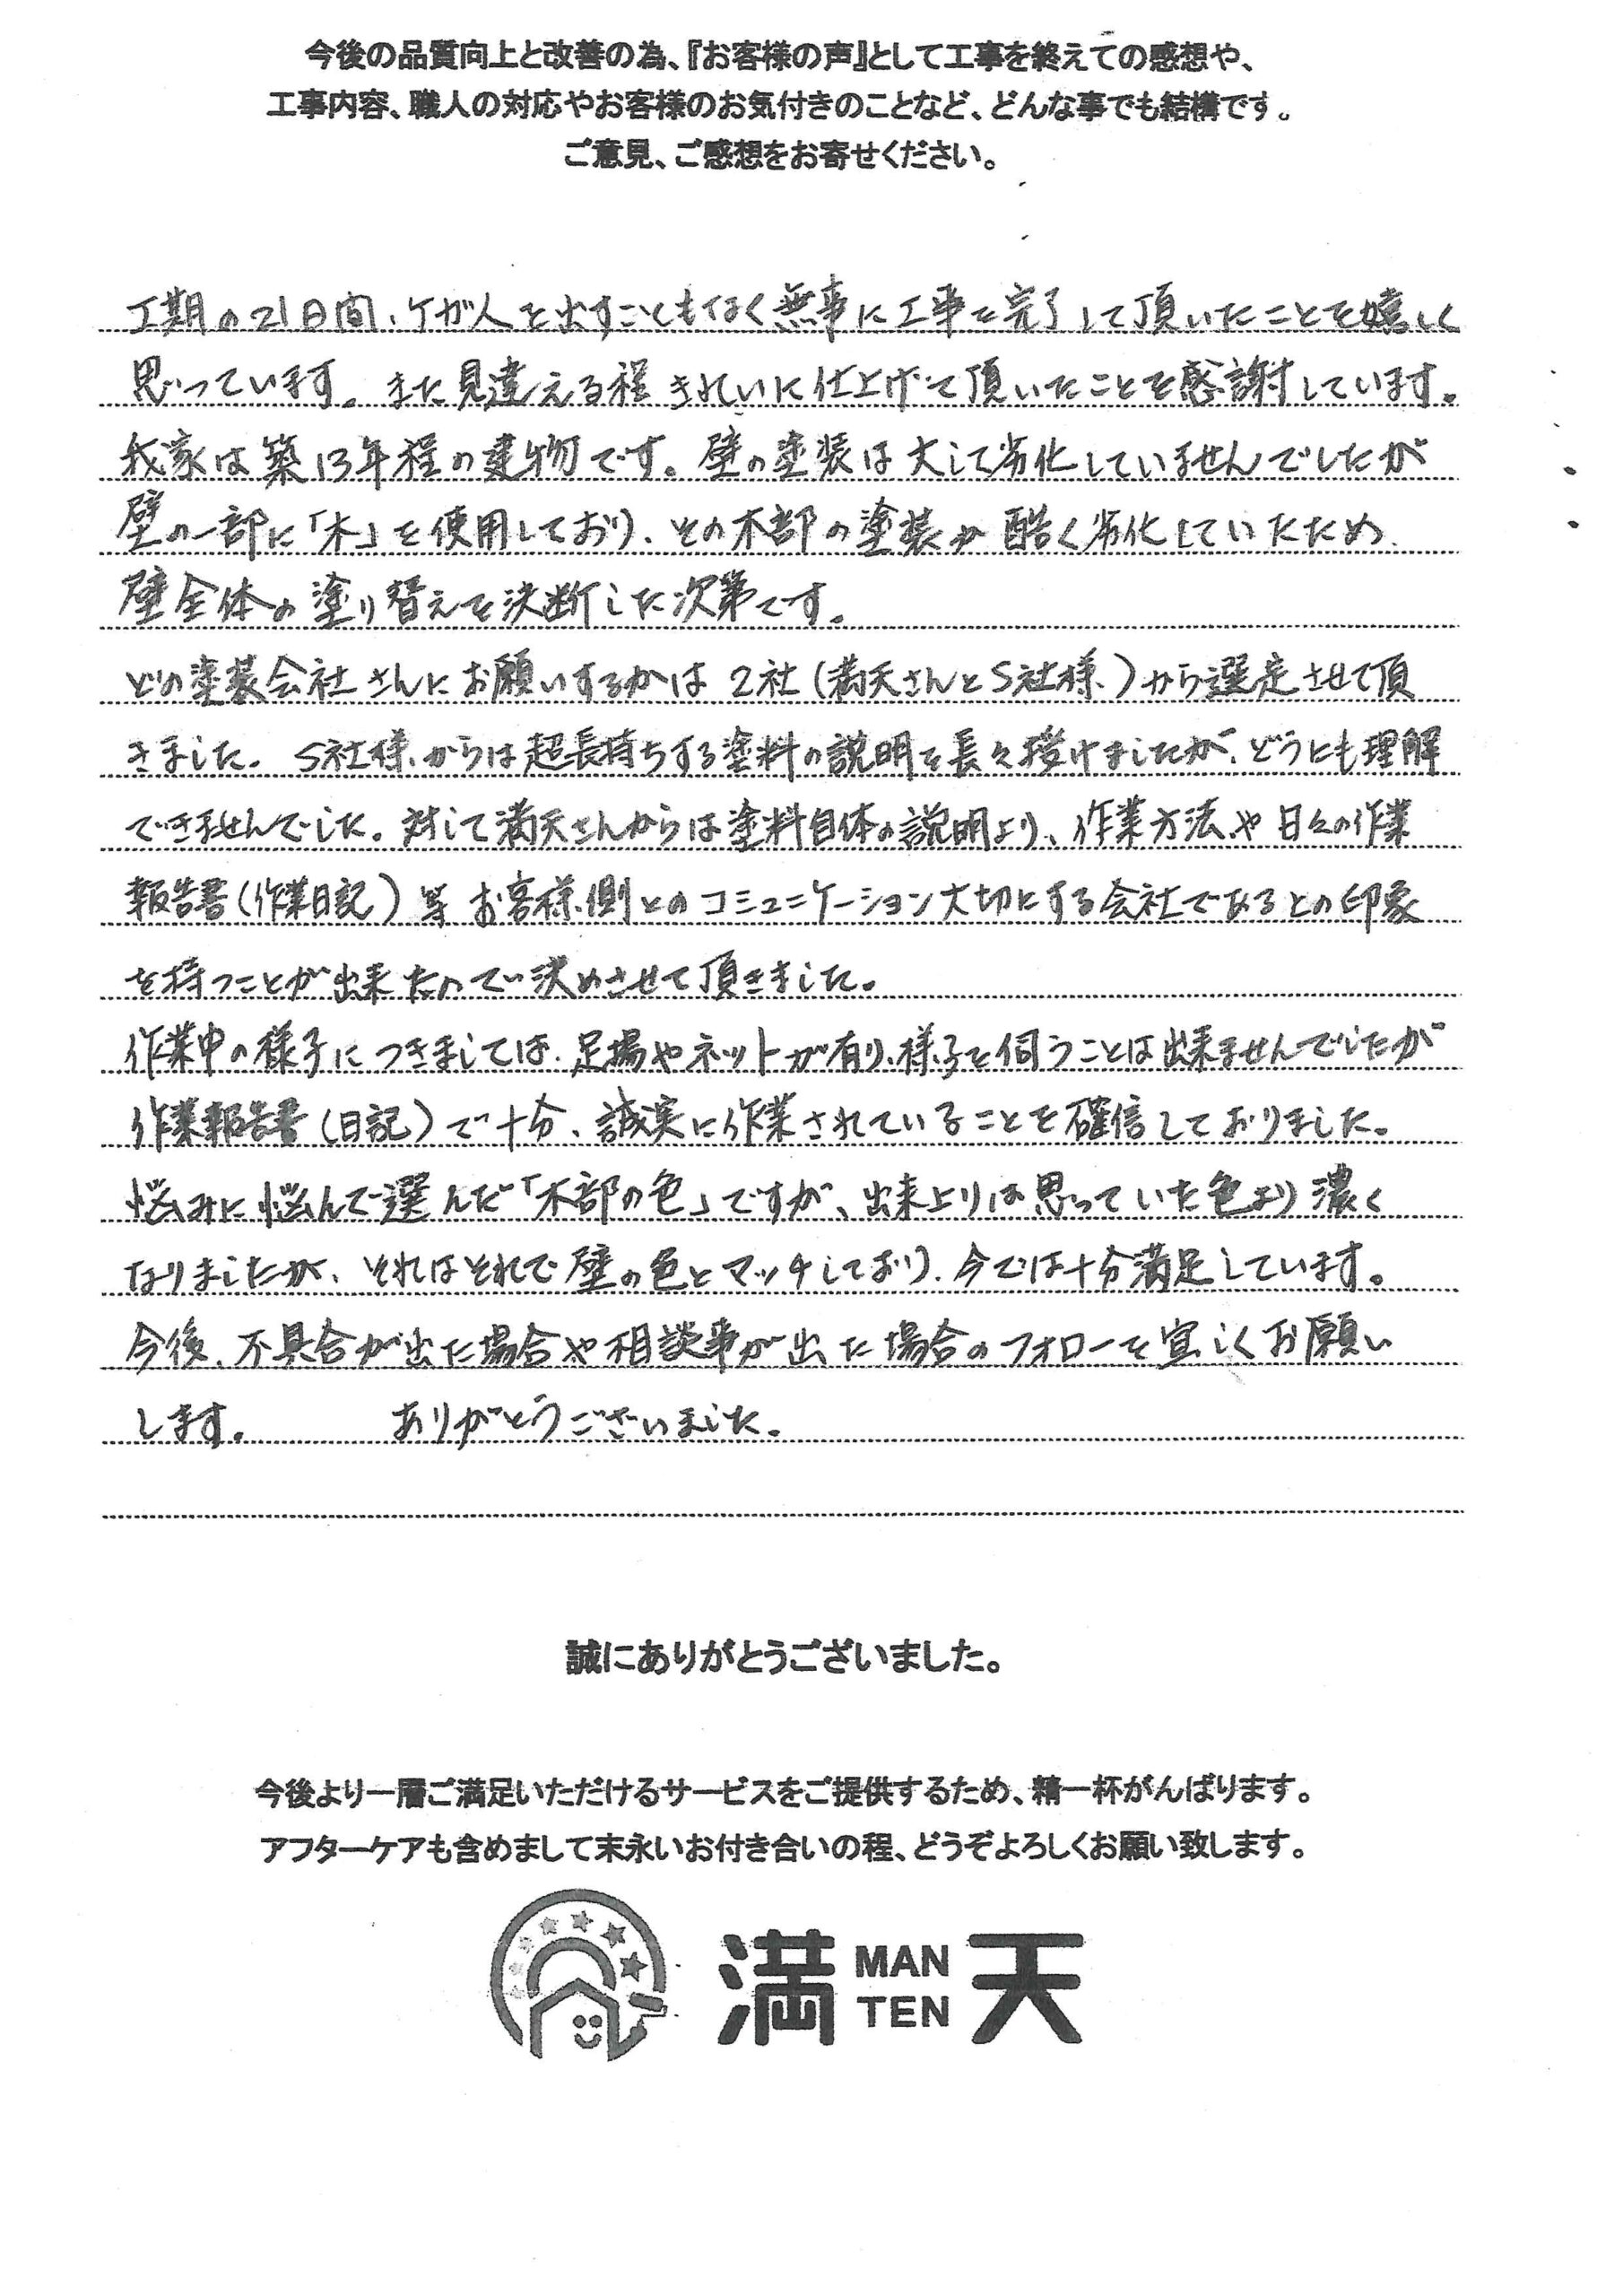 今後の品質向上と改善の為、『お客様の声』として工事を終えての感想や、
工事内容、職人の対応やお客様のお気付きのことなど、どんな事でも結構です。
ご意見、ご感想をお寄せください。
工期の21日間、ケガ人を出すこともなく無事に工事を完了して頂いたことを嬉しく
思っています。また見違える程きれいに仕上げて頂いたことを感謝しています。
我家は築13年程の建物です。壁の塗装は大して劣化していませんでしたが
壁の一部に「木」を使用しており、その木部の塗装が酷く劣化していたため
壁全体の塗り替えを決断した次第です。
どの塗装会社さんにお願いするかは2社(満天さんとS社様)から選定させて頂
きました。S社様からは超長持ちする塗料の説明を長々授けましたが、どうにも理解
できませんでした。対して満天さんからは塗料自体の説明より、作業方法や日々の作業
報告書(作業日記)等お客様側とのコミュニケーション大切にする会社であるとの印象
を持つことが出来たので決めさせて頂きました。
作業中の様子につきましては、足場やネットが有り、様子を伺うことは出来ませんでしたが
作業報告書(日記)で十分、誠実に作業されていることを確信しておりました。
悩みに悩んで選んだ「木部の色」ですが、出来上りは思っていた色より濃く
なりましたが、それはそれで壁の色とマッチしており、今では十分満足しています。
今後、不具合が出た場合や相談事が出た場合のフォローを宜しくお願い
します。 ありがとうございました。
誠にありがとうございました。
今後より一層ご満足いただけるサービスをご提供するため、精一杯がんばります。
アフターケアも含めまして末永いお付き合いの程、どうぞよろしくお願い致します。
満 MAN TEN 天